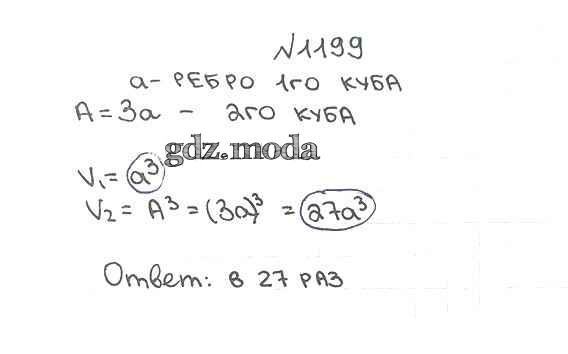 N1199
a- РЕБРО 1го КУБА
A = 3a - 2го КУБА
gdz.moda
V₁ = a³
V₂ = A³ = (3a)³ = 27a³
Ответ: в 27 РАЗ